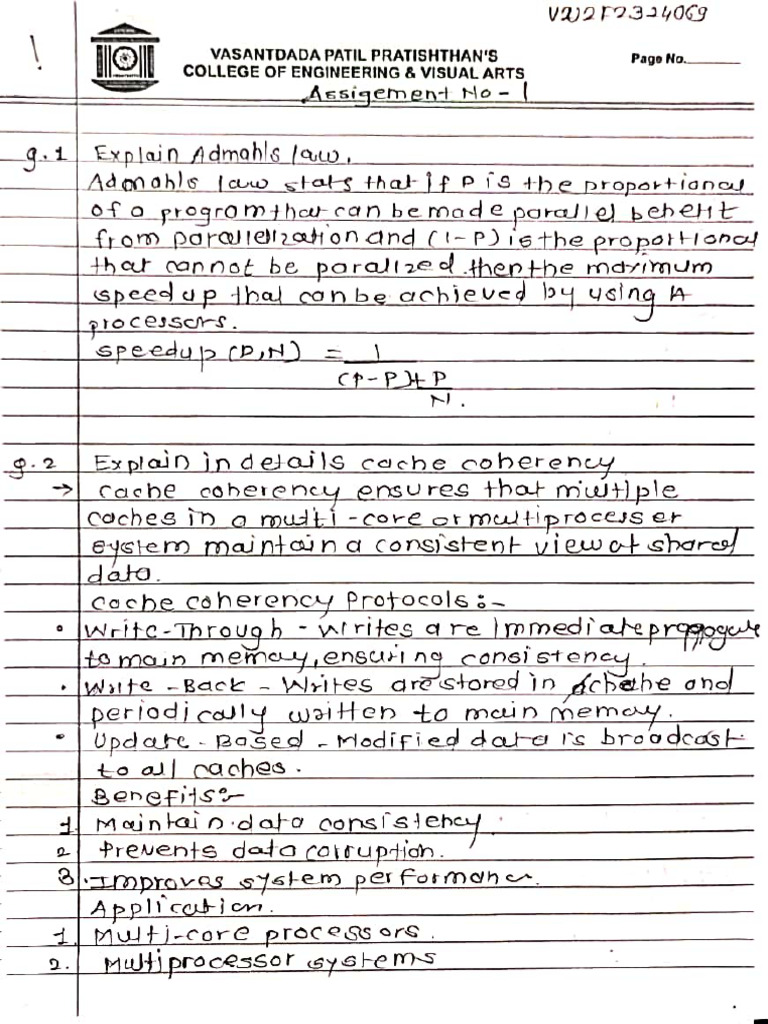 VU2F2324069
VASANTDADA PATIL PRATISHTHAN'S
COLLEGE OF ENGINEERING & VISUAL ARTS
Page No.
Assigement No - 1
g.1 Explain Admahls law.
Admahls law stats that if P is the proportional
of a program that can be made parallel benefit
from parallelization and (1-P) is the proportional
that cannot be paralized. then the maximum
speed up that can be achieved by using A
processors.
speedup (P,N) = 1
(1-P)+ P
N.
g.2 Explain in details cache coherency
→ cache coherency ensures that multiple
caches in a multi-core or multiprocesser
system maintain a consistent view of shared
data.
Cache coherency Protocols:-
• Write-Through - Writes are immediate
to main memay, ensuring consistency.
• Write-Back - Writes are stored in and
periodically written to main memay.
• Update-Based - Modified data is broadcast
to all caches.
Benefits:-
1. Maintain data consistency.
2 Prevents data corruption.
3. Improves system performance.
Application.
1. Multi-core processors.
2. Multiprocessor systems